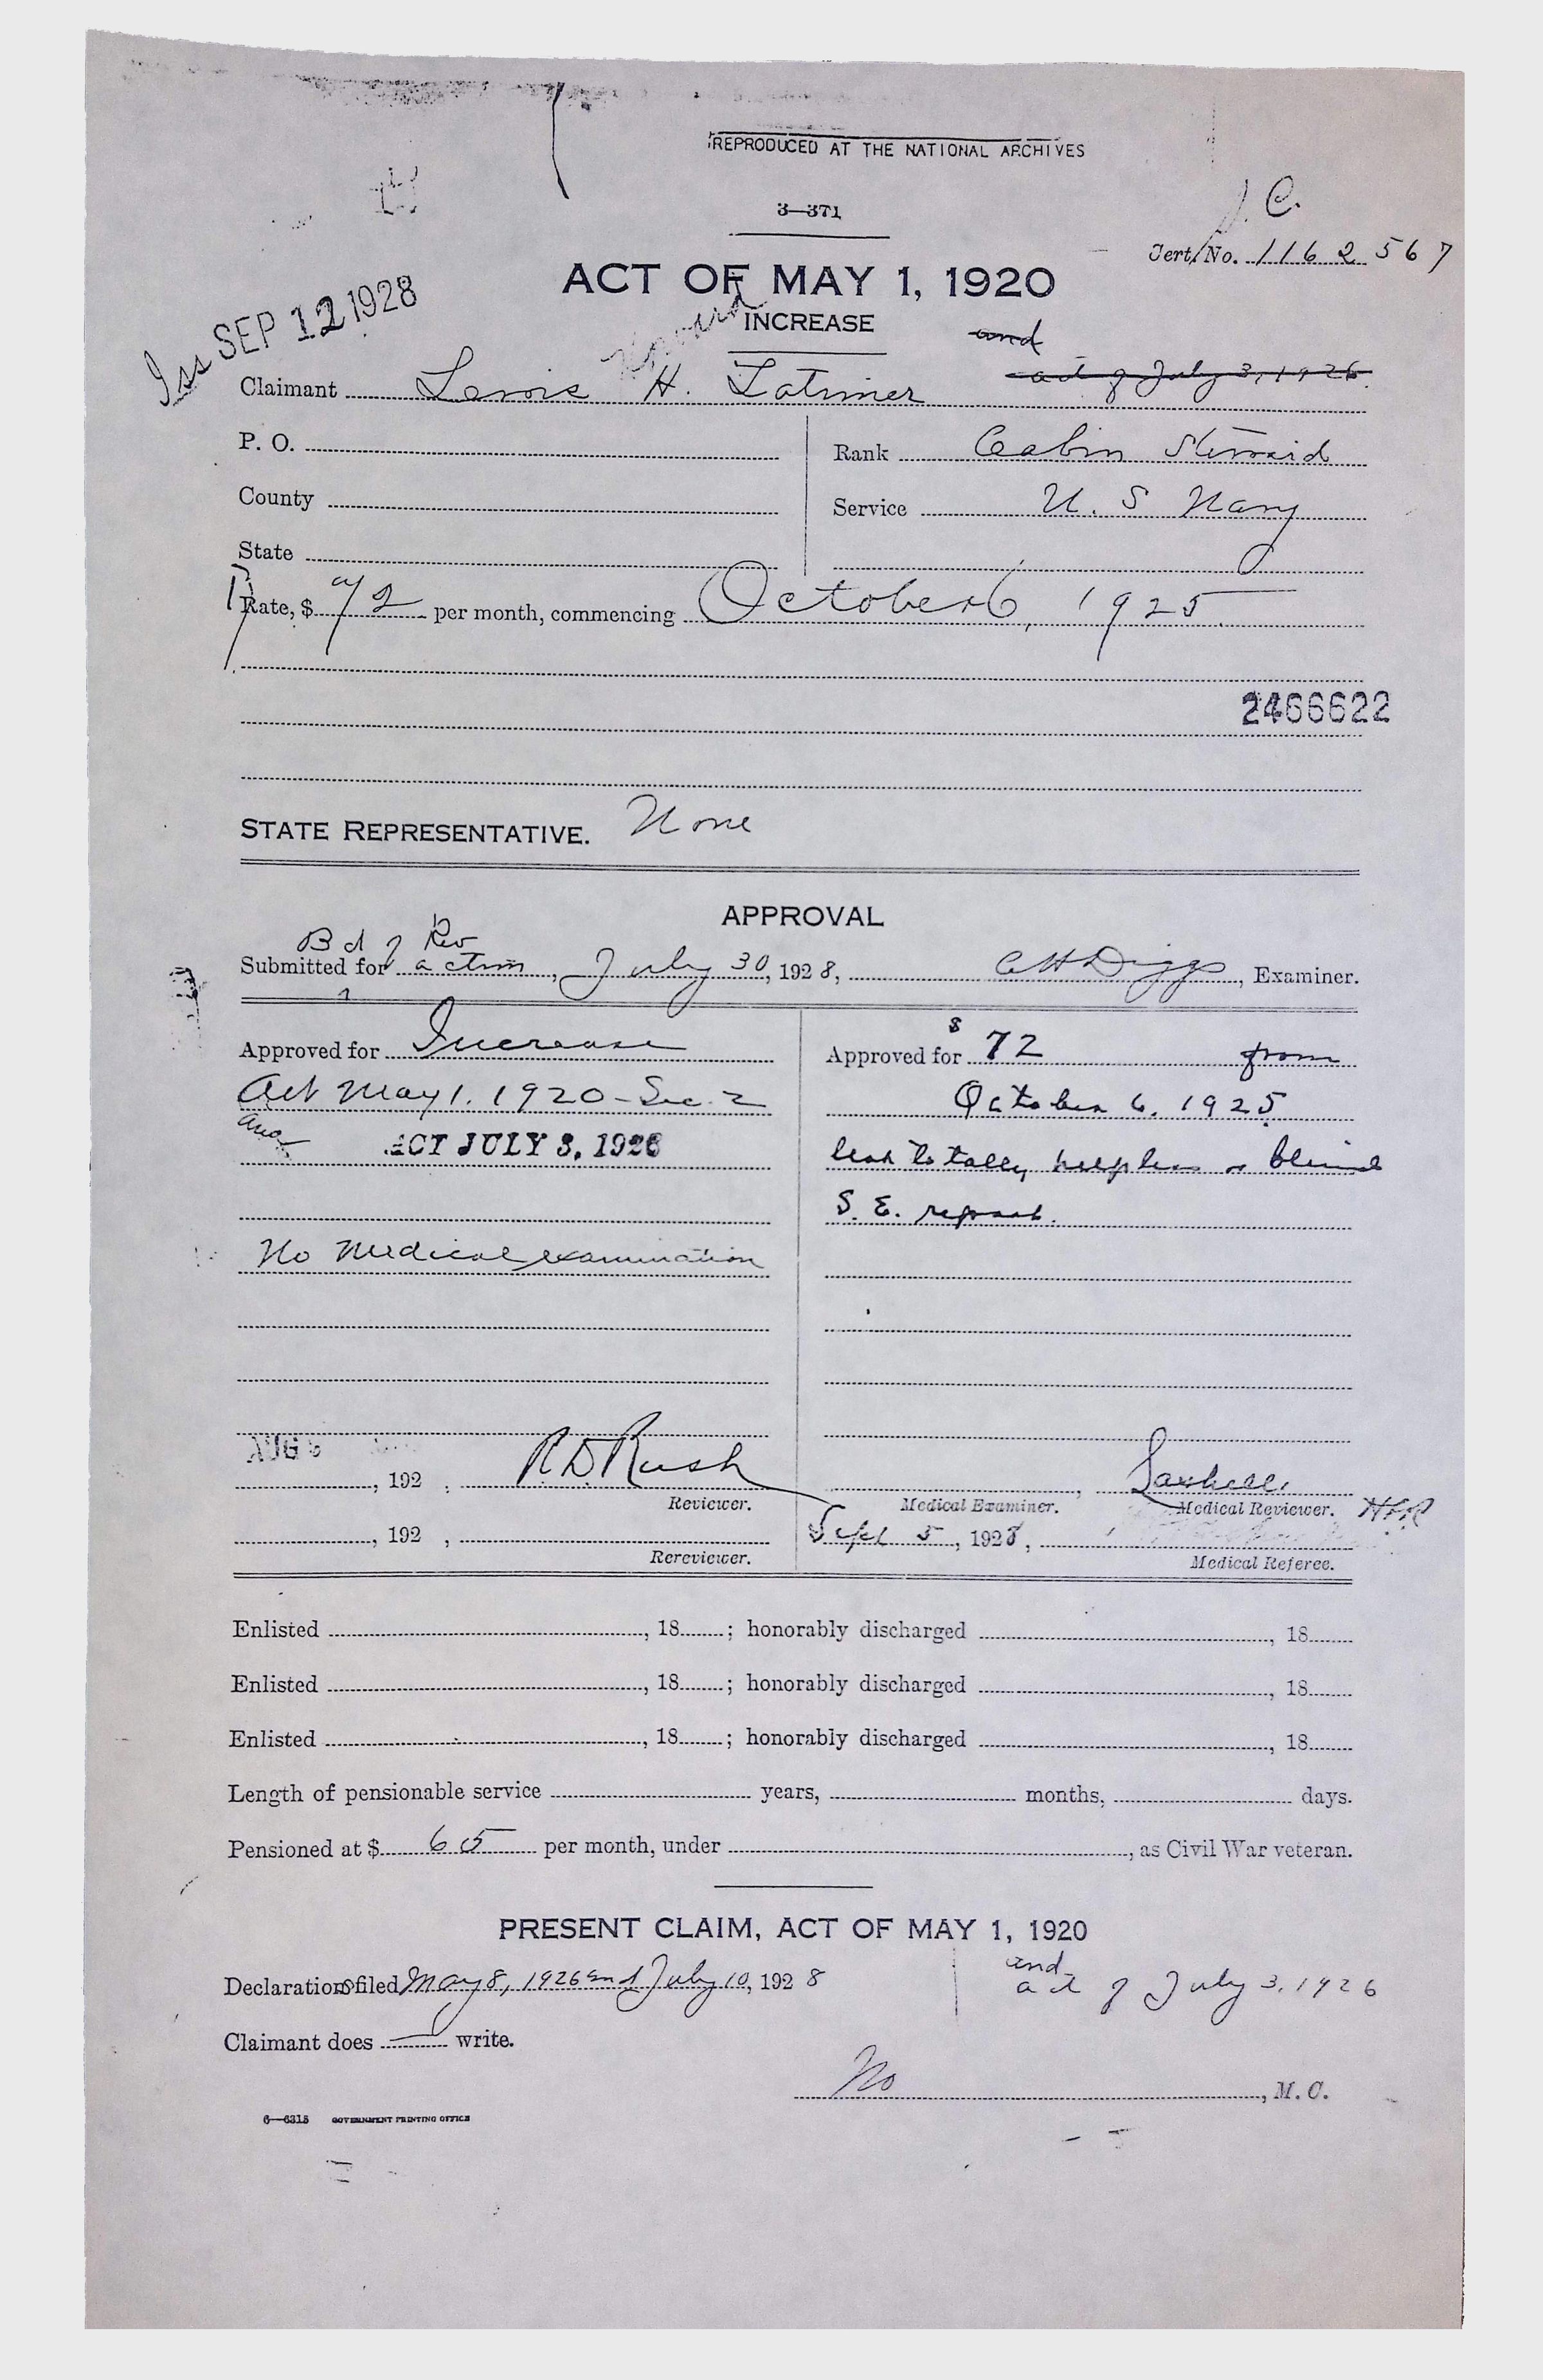 REPRODUCED AT THE NATIONAL ARCHIVES
3—371
C.
Cert. No. 1162567
ACT OF MAY 1, 1920
INCREASE
and
act of July 3, 1926
Iss SEP 12 1928
Claimant Lewis H. Latimer
P. O.
Rank Cabin Steward
County
Service U. S Navy
State
Rate, $ 72 per month, commencing October 6, 1925
2466622
STATE REPRESENTATIVE. None
APPROVAL
Bd of Rev
Submitted for action, July 30, 1928, C H Diggs, Examiner.
Approved for Increase
Act May 1. 1920 - Sec. 2
and ACT JULY 3, 1926
No Medical examination
Approved for $72 from
October 6. 1925
less totally helpless or blind
S. E. report.
AUG
, 192 , R. D. Rush
Reviewer.
Medical Examiner.
Medical Reviewer.
, 192 ,
Rereviewer.
Sept 5, 1928,
Medical Referee.
Enlisted , 18 ; honorably discharged , 18
Enlisted , 18 ; honorably discharged , 18
Enlisted , 18 ; honorably discharged , 18
Length of pensionable service years, months, days.
Pensioned at $ 65 per month, under , as Civil War veteran.
PRESENT CLAIM, ACT OF MAY 1, 1920
and
act of July 3, 1926
Declarations filed May 8, 1926 and July 10, 1928
Claimant does write.
No , M. C.
6—6315 GOVERNMENT PRINTING OFFICE